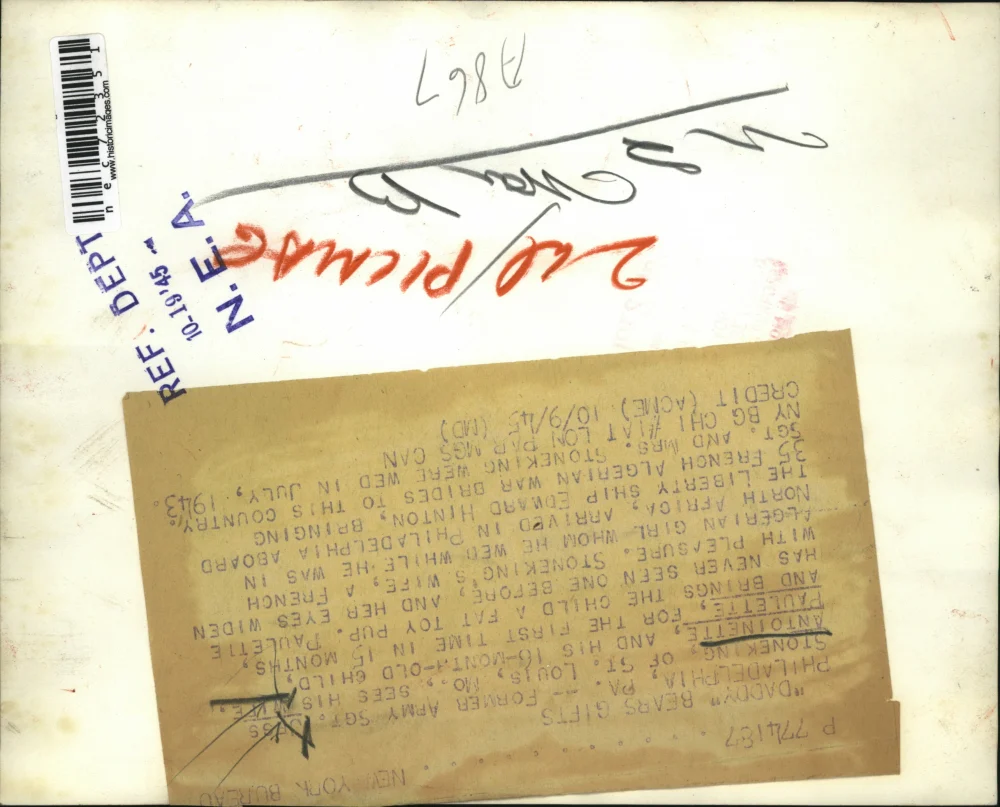 NEW YORK BUREAU
P 774187
"DADDY" BEARS GIFTS
PHILADELPHIA, PA. -- FORMER ARMY SGT. JESS
STONEKING, OF ST. LOUIS, MO., SEES HIS WIFE,
ANTOINETTE, AND HIS 16-MONTH-OLD CHILD,
PAULETTE, FOR THE FIRST TIME IN 15 MONTHS,
AND BRINGS THE CHILD A FAT TOY PUP. PAULETTE
HAS NEVER SEEN ONE BEFORE, AND HER EYES WIDEN
WITH PLEASURE. STONEKING'S WIFE, A FRENCH
ALGERIAN GIRL WHOM HE WED WHILE HE WAS IN
NORTH AFRICA, ARRIVED IN PHILADELPHIA ABOARD
THE LIBERTY SHIP EDWARD HINTON, BRINGING
35 FRENCH ALGERIAN WAR BRIDES TO THIS COUNTRY.
SGT. AND MRS. STONEKING WERE WED IN JULY, 1943.
NY BG CHI LON PAR MGS CAN
CREDIT (ACME) 10/9/45 (MD)
2 PICMAG
A867
REF. DEPT
10-19'45
N.E.A.
nec72351
www.historicimages.com